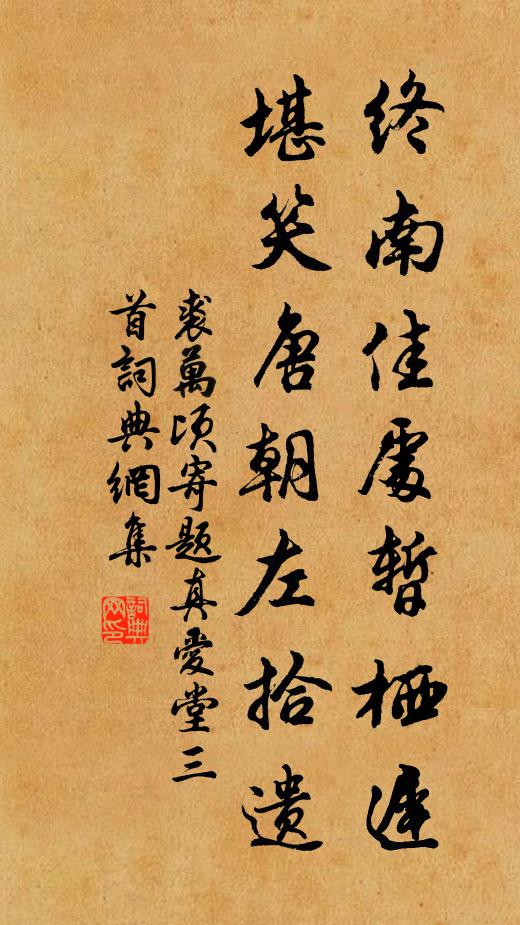 終南佳處暫栖遲
堪笑唐朝左拾遺
裘萬頃寄題真愛堂三
首詞典網集
詞典
网印